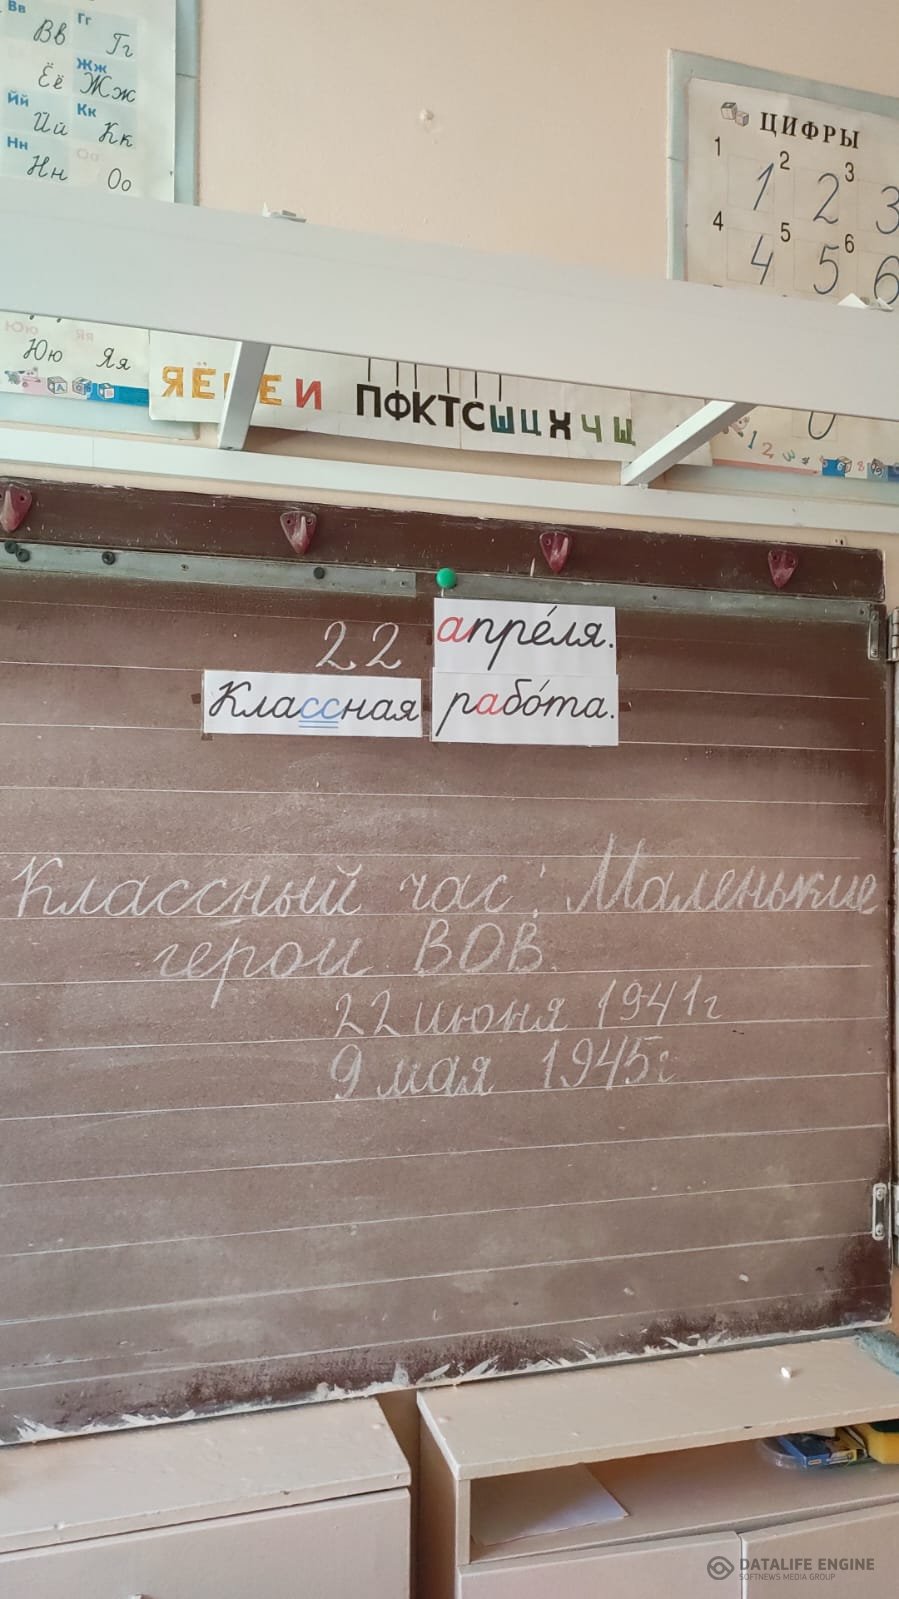 Вв Гг
Вв Гг
Жж
Ёё Жж
Йй Кк
Йй Кк
Нн Оо
Нн Оо
ЦИФРЫ
1 2 3
1 2 3
4 5 6
4 5 6
Юю Яя
Юю Яя
ЯЁ Е И ПФКТСШЦХЧЩ
0
1 2 3 4
8
22 апре́ля.
Классная рабо́та.
Классный час: Маленькие
герои ВОВ.
22 июня 1941г
9 мая 1945г
DATALIFE ENGINE
SOFTNEWS MEDIA GROUP